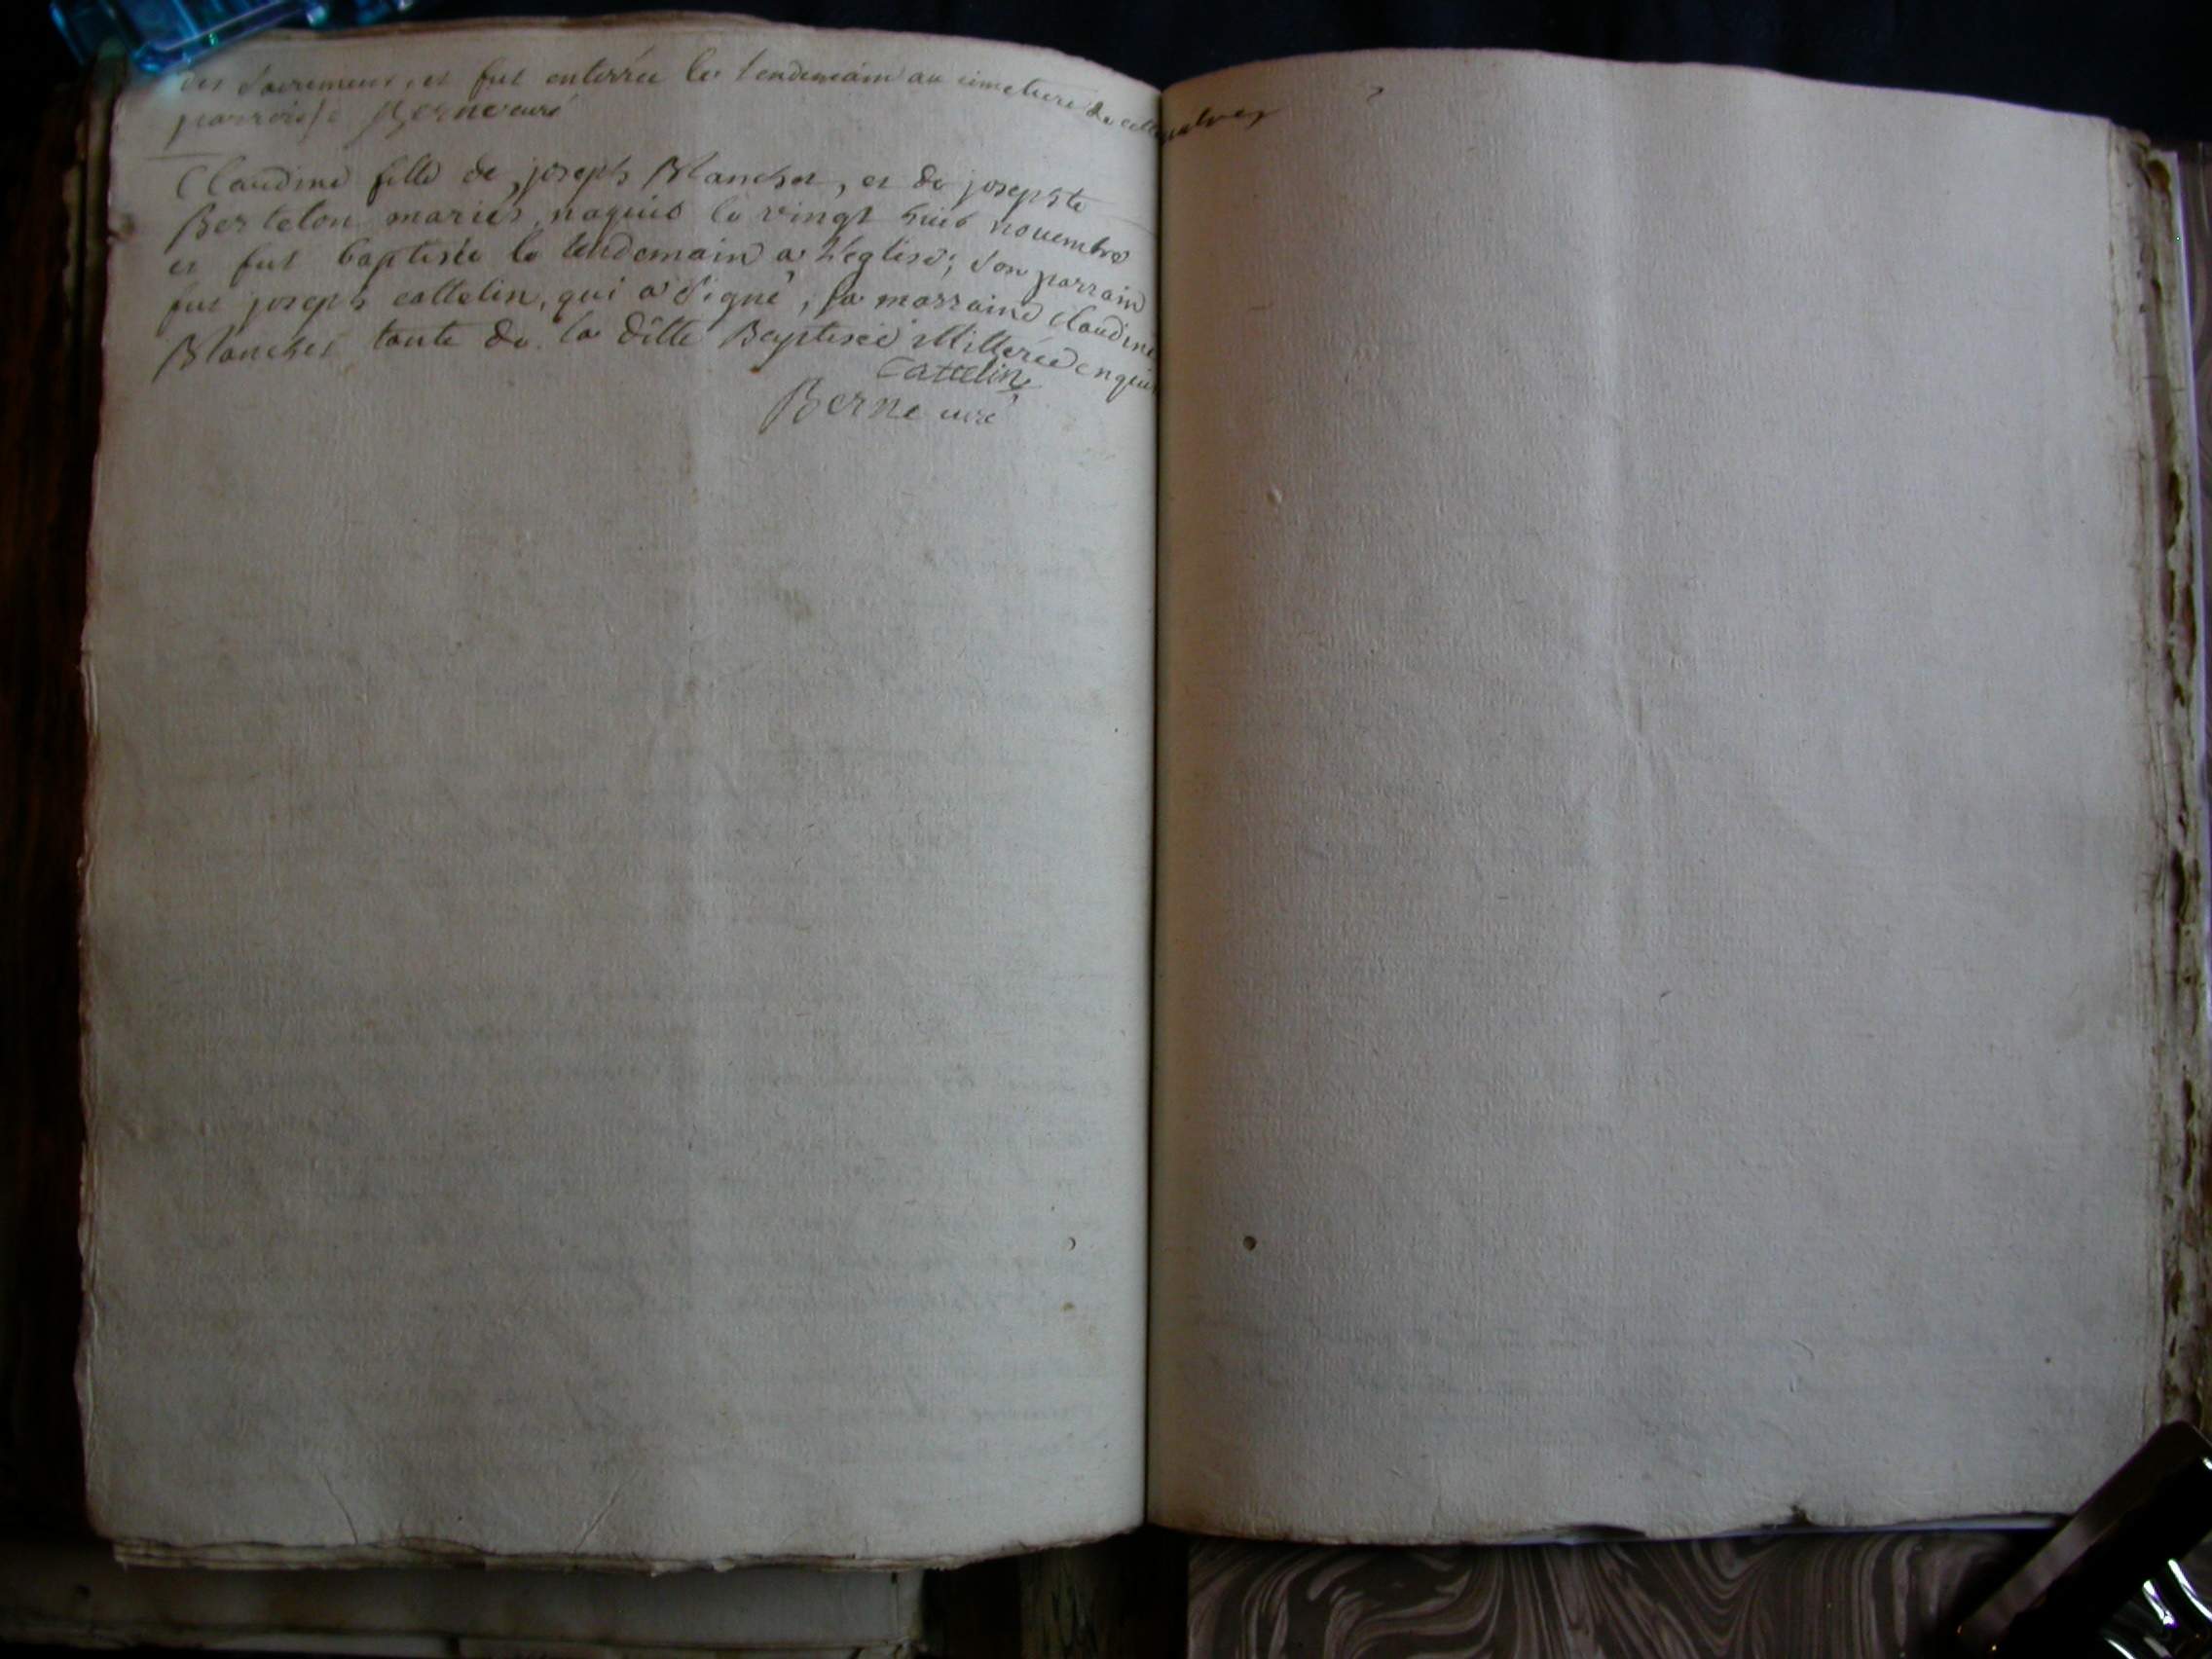 des Sacremens, et fut enterrée le lendemain au cimetiere de cette
parroisse Berne curé
Claudine fille de joseph Blanchet, et de josephte
Bertelon mariés, naquit le vingt huit novembre
et fut baptisée le lendemain a L'eglise; son parrain
fut joseph cattelin, qui a Signé; sa marraine Claudine
Blanchet tante de la ditte Baptisée illiterée enquise
Cattelin
Berne curé